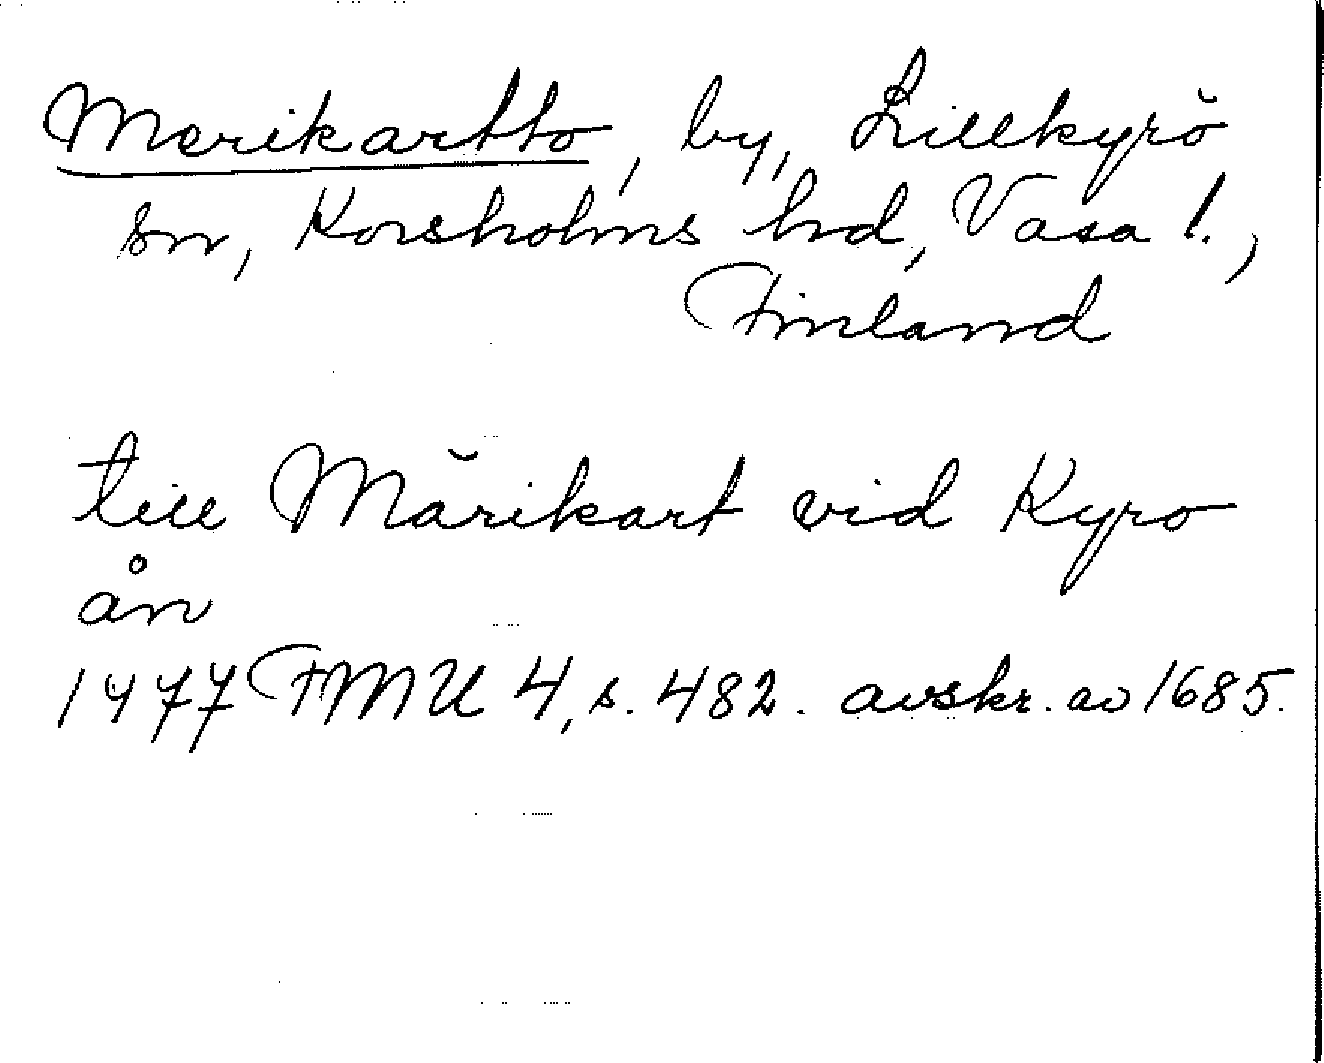 Merikartto, by, Lillkyrö
sn, Korsholms hd, Vasa l.,
Finland
till Märikart vid Kyro
ån
1477 FMU 4, s. 482. avskr. av 1685.